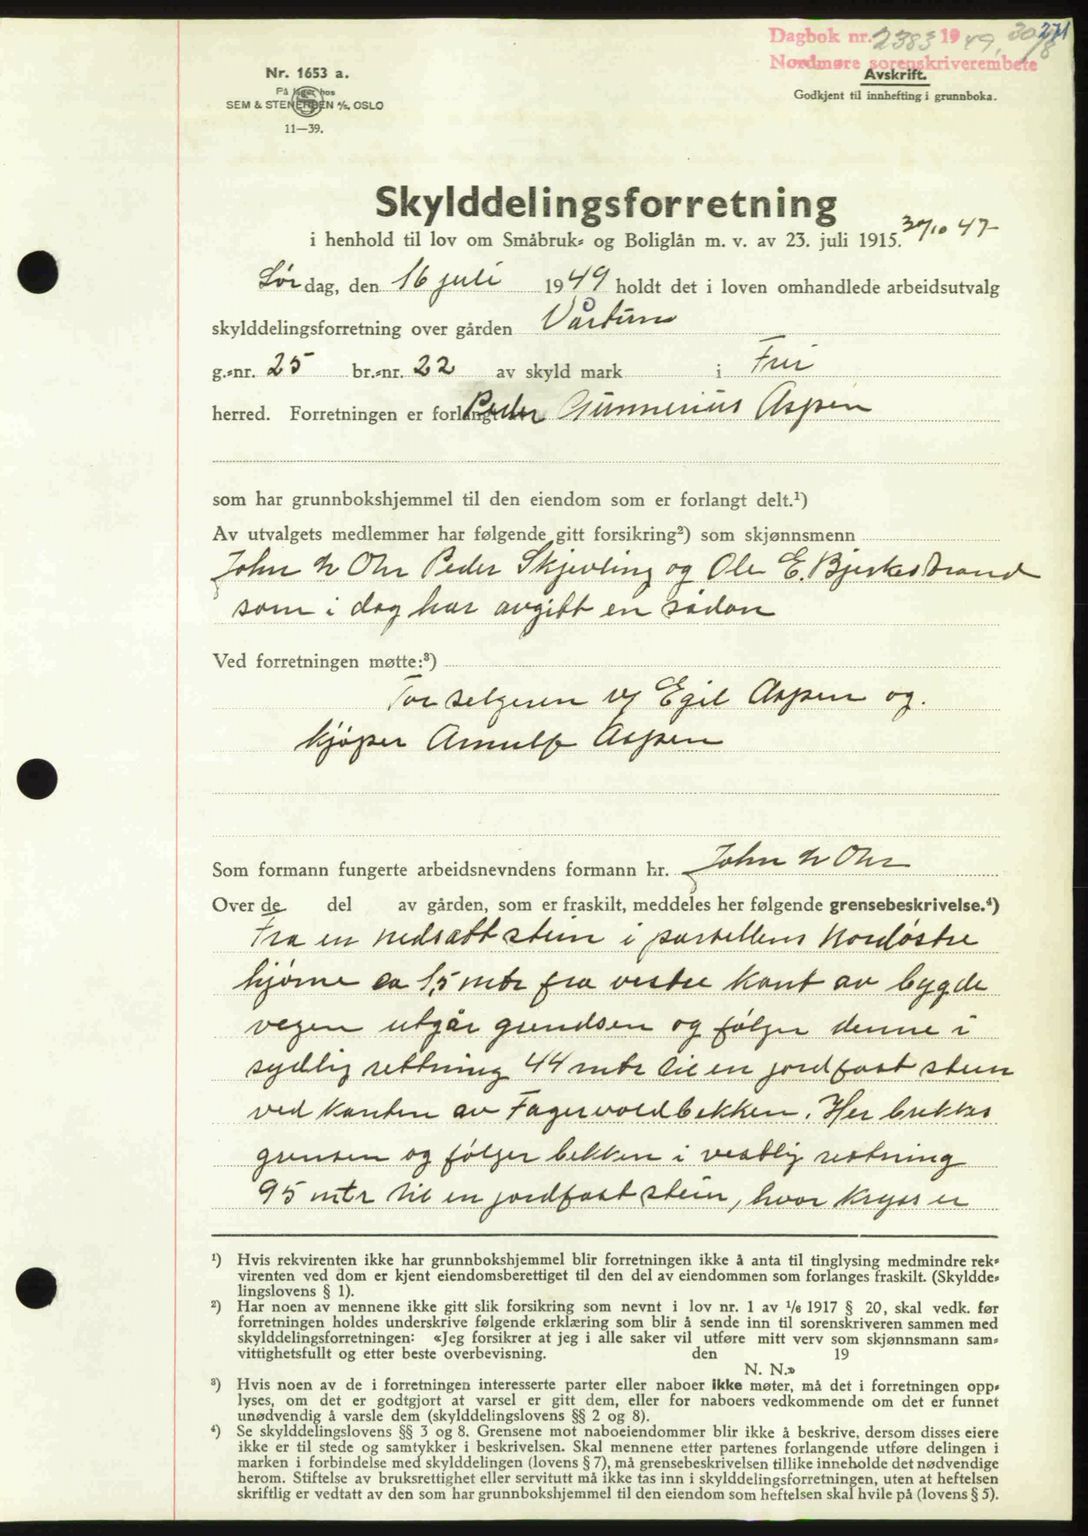 Dagbok nr. 2383 1949, 30/8 271
Nordmøre sorenskriverembete
Avskrift.
Godkjent til innhefting i grunnboka.
Nr. 1653 a.
På lager hos
SEM & STENERSEN A/S, OSLO
11—39.
Skylddelingsforretning
i henhold til lov om Småbruk- og Boliglån m. v. av 23. juli 1915.
Lørdag, den 16 juli 1949 holdt det i loven omhandlede arbeidsutvalg
skylddelingsforretning over gården Vårtun
g.-nr. 25 br.-nr. 22 av skyld mark i Frei
herred. Forretningen er forlangt av Peder Gunnerius Aspen
som har grunnbokshjemmel til den eiendom som er forlangt delt.¹)
Av utvalgets medlemmer har følgende gitt forsikring²) som skjønnsmenn
John N Ohr Peder Skjevling og Ole E. Bjerkestrand
som i dag har avgitt en sådan
Ved forretningen møtte:³)
For selgeren v/ Egil Aspen og
kjøper Arnulf Aspen
Som formann fungerte arbeidsnevndens formann hr. John N Ohr
Over de del av gården, som er fraskilt, meddeles her følgende grensebeskrivelse.⁴)
Fra en nedsatt stein i parsellens Nordøstre
hjørne ca 1,5 mtr fra vestre kant av bygde
vegen utgår grendsen og følger denne i
sydlig rettning 44 mtr til en jordfast stein
ved kanten av Fagervoldbekken. Her brekkes
grensen og følger bekken i vestlig rettning
95 mtr til en jordfast stein, hvor kryss er
¹) Hvis rekvirenten ikke har grunnbokshjemmel blir forretningen ikke å anta til tinglysing medmindre rek-
virenten ved dom er kjent eiendomsberettiget til den del av eiendommen som forlanges fraskilt. (Skyldde-
lingslovens § 1).
²) Har noen av mennene ikke gitt slik forsikring som nevnt i lov nr. 1 av 1/6 1917 § 20, skal vedk. før
forretningen holdes underskrive følgende erklæring som blir å sende inn til sorenskriveren sammen med
skylddelingsforretningen: «Jeg forsikrer at jeg i alle saker vil utføre mitt verv som skjønnsmann sam-
vittighetsfullt og etter beste overbevisning. den 19
N. N.»
³) Hvis noen av de i forretningen interesserte parter eller naboer ikke møter, må det i forretningen opp-
lyses, om det er godtgjort at varsel er gitt dem, eller for naboers vedkommende om det er funnet
unødvendig å varsle dem (skylddelingslovens §§ 2 og 8).
⁴) Se skylddelingslovens §§ 3 og 8. Grensene mot naboeiendommer blir ikke å beskrive, dersom disses eiere
ikke er til stede og samtykker i beskrivelsen. Skal mennene etter partenes forlangende utføre delingen i
marken i forbindelse med skylddelingen (lovens § 7), må grensebeskrivelsen tillike inneholde det nødvendige
herom. Stiftelse av bruksrettighet eller servitutt må ikke tas inn i skylddelingsforretningen, uten at heftelsen
skriftlig er vedtatt av den som har grunnbokshjemmel til den eiendom som heftelsen skal hvile på (lovens § 5).